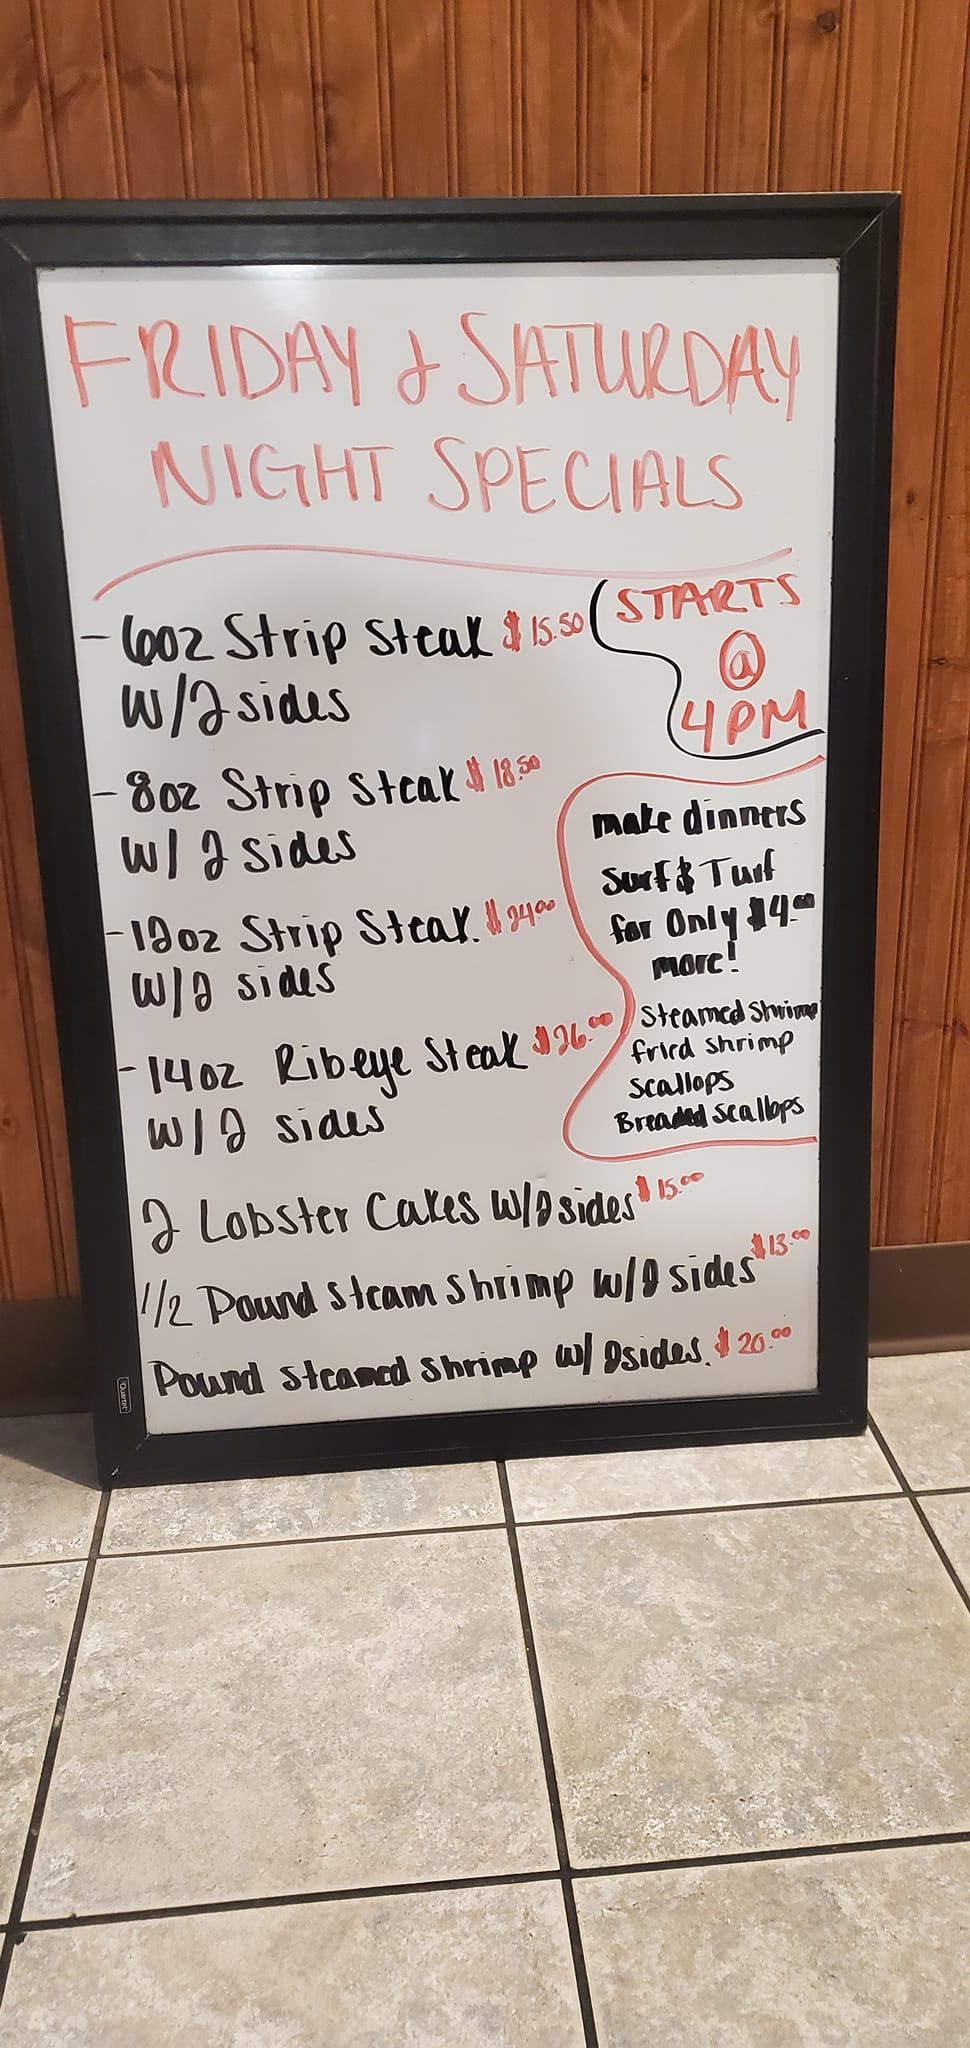 FRIDAY & SATURDAY
NIGHT SPECIALS
STARTS
@
4PM
- 6oz Strip Steak $15.50
W/2 sides
- 8oz Strip Steak $18.50
W/ 2 sides
- 12oz Strip Steak $24.00
W/2 sides
- 14oz Ribeye Steak $26.00
W/2 sides
make dinners
Surf & Turf
for Only $4.00
more!
Steamed Shrimp
fried shrimp
scallops
Breaded scallops
2 Lobster Cakes W/2 sides $15.00
1/2 Pound Steam Shrimp w/2 sides $13.00
Pound Steamed Shrimp w/ 2 sides. $20.00
Quartet